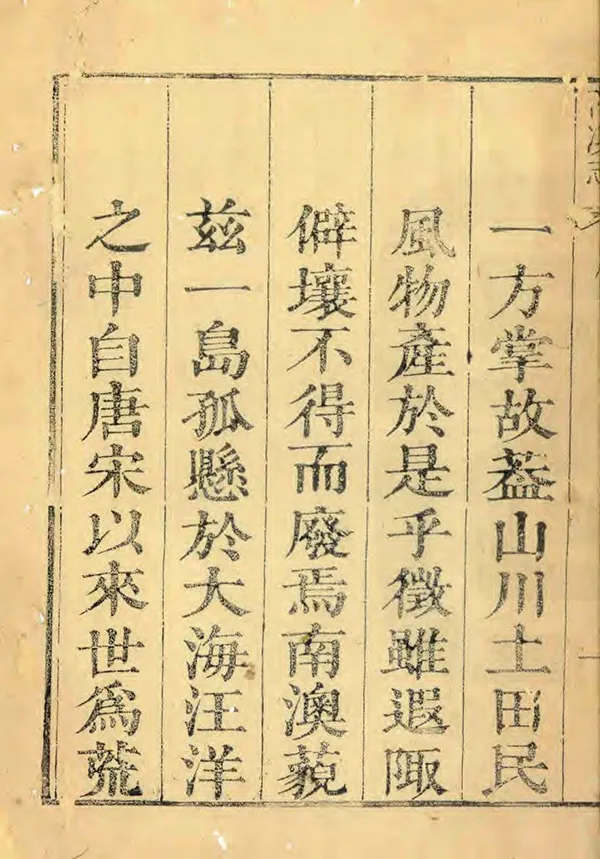 一方掌故葢山川土田民
風物產於是乎徵雖遐陬
僻壤不得而廢焉南澳藐
兹一島孤懸於大海汪洋
之中自唐宋以來世爲荒